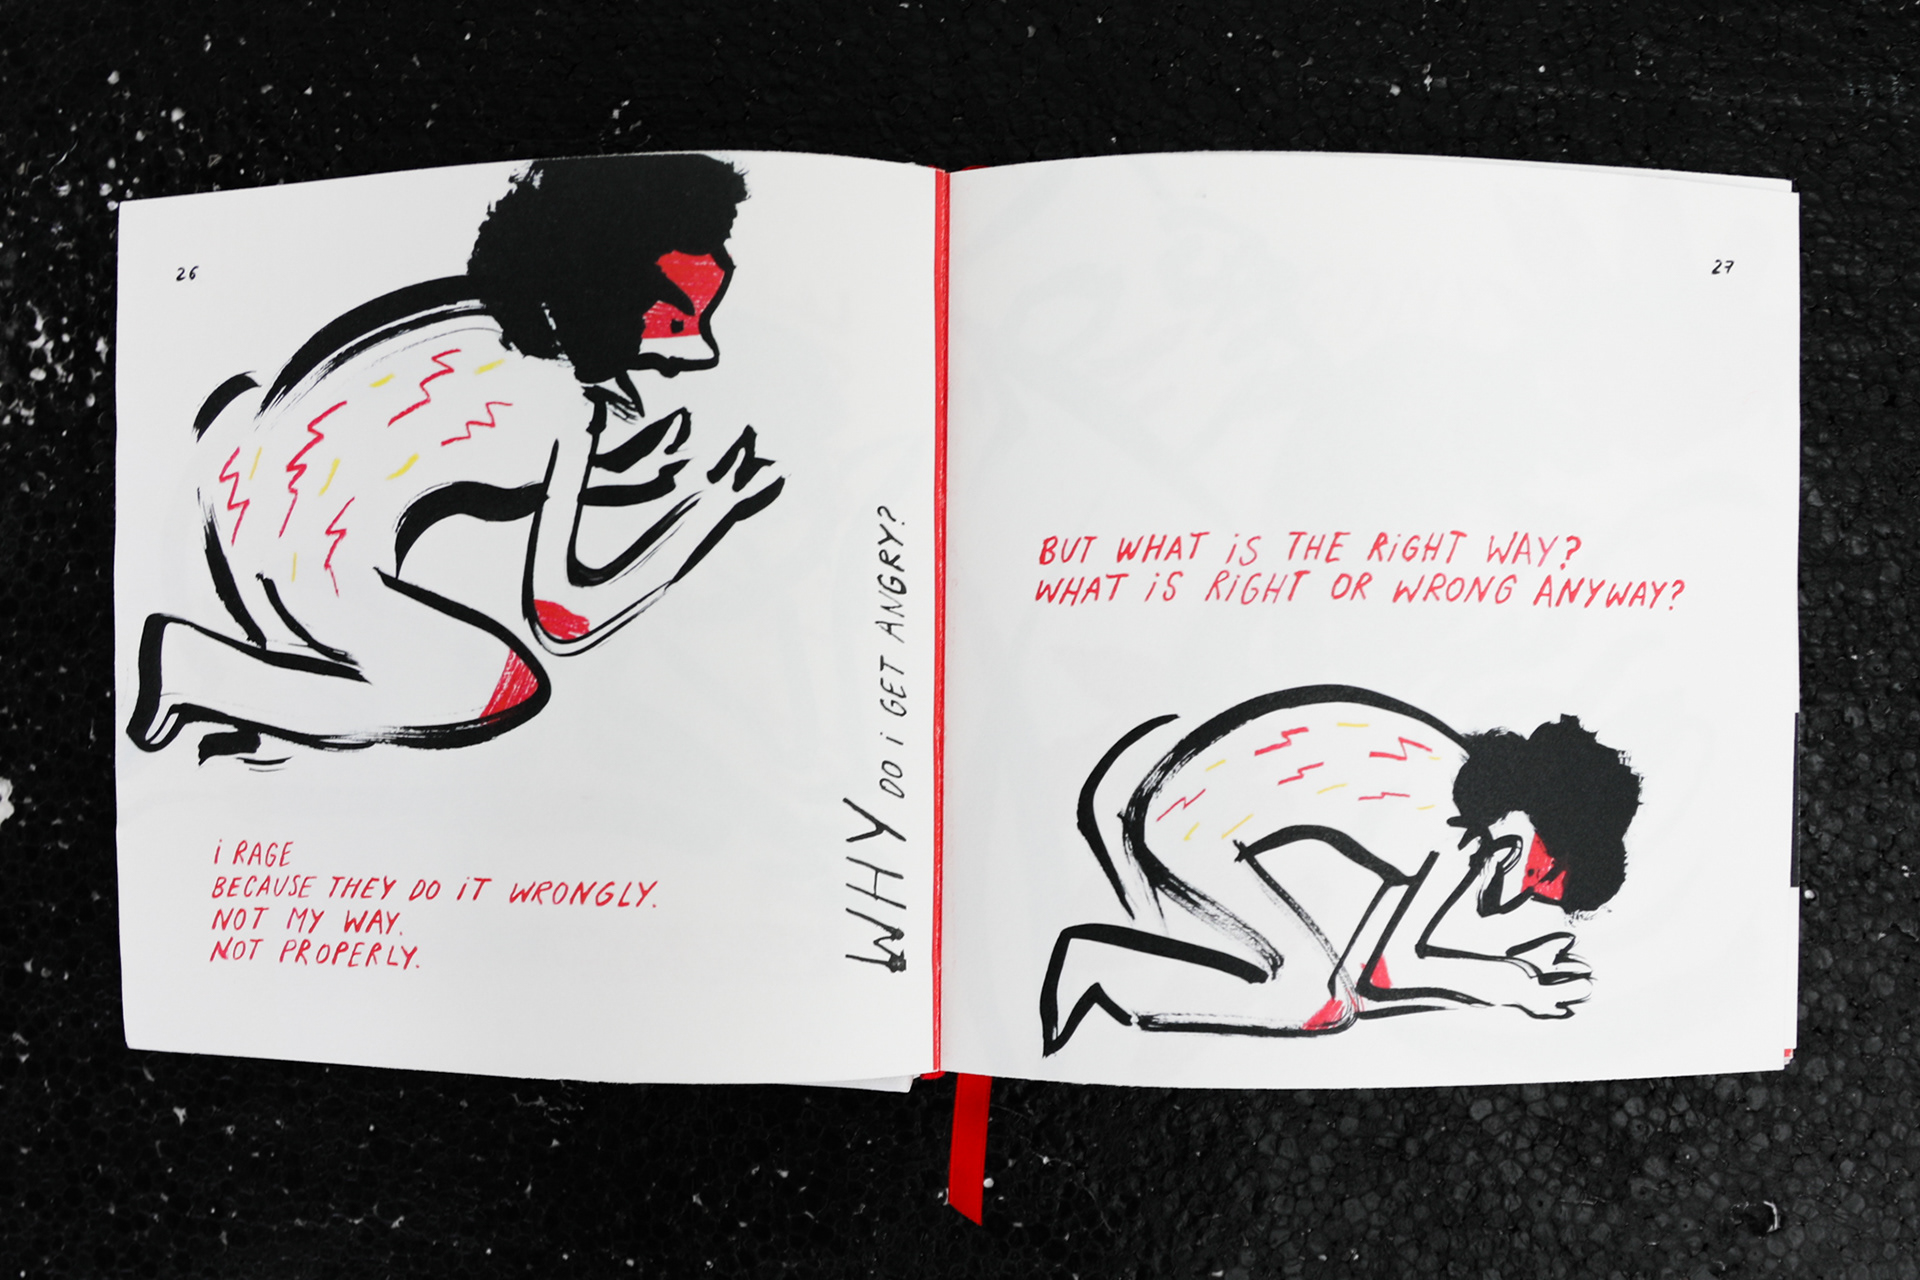 26
I RAGE
BECAUSE THEY DO IT WRONGLY.
NOT MY WAY.
NOT PROPERLY.
WHY DO I GET ANGRY?
27
BUT WHAT IS THE RIGHT WAY?
WHAT IS RIGHT OR WRONG ANYWAY?